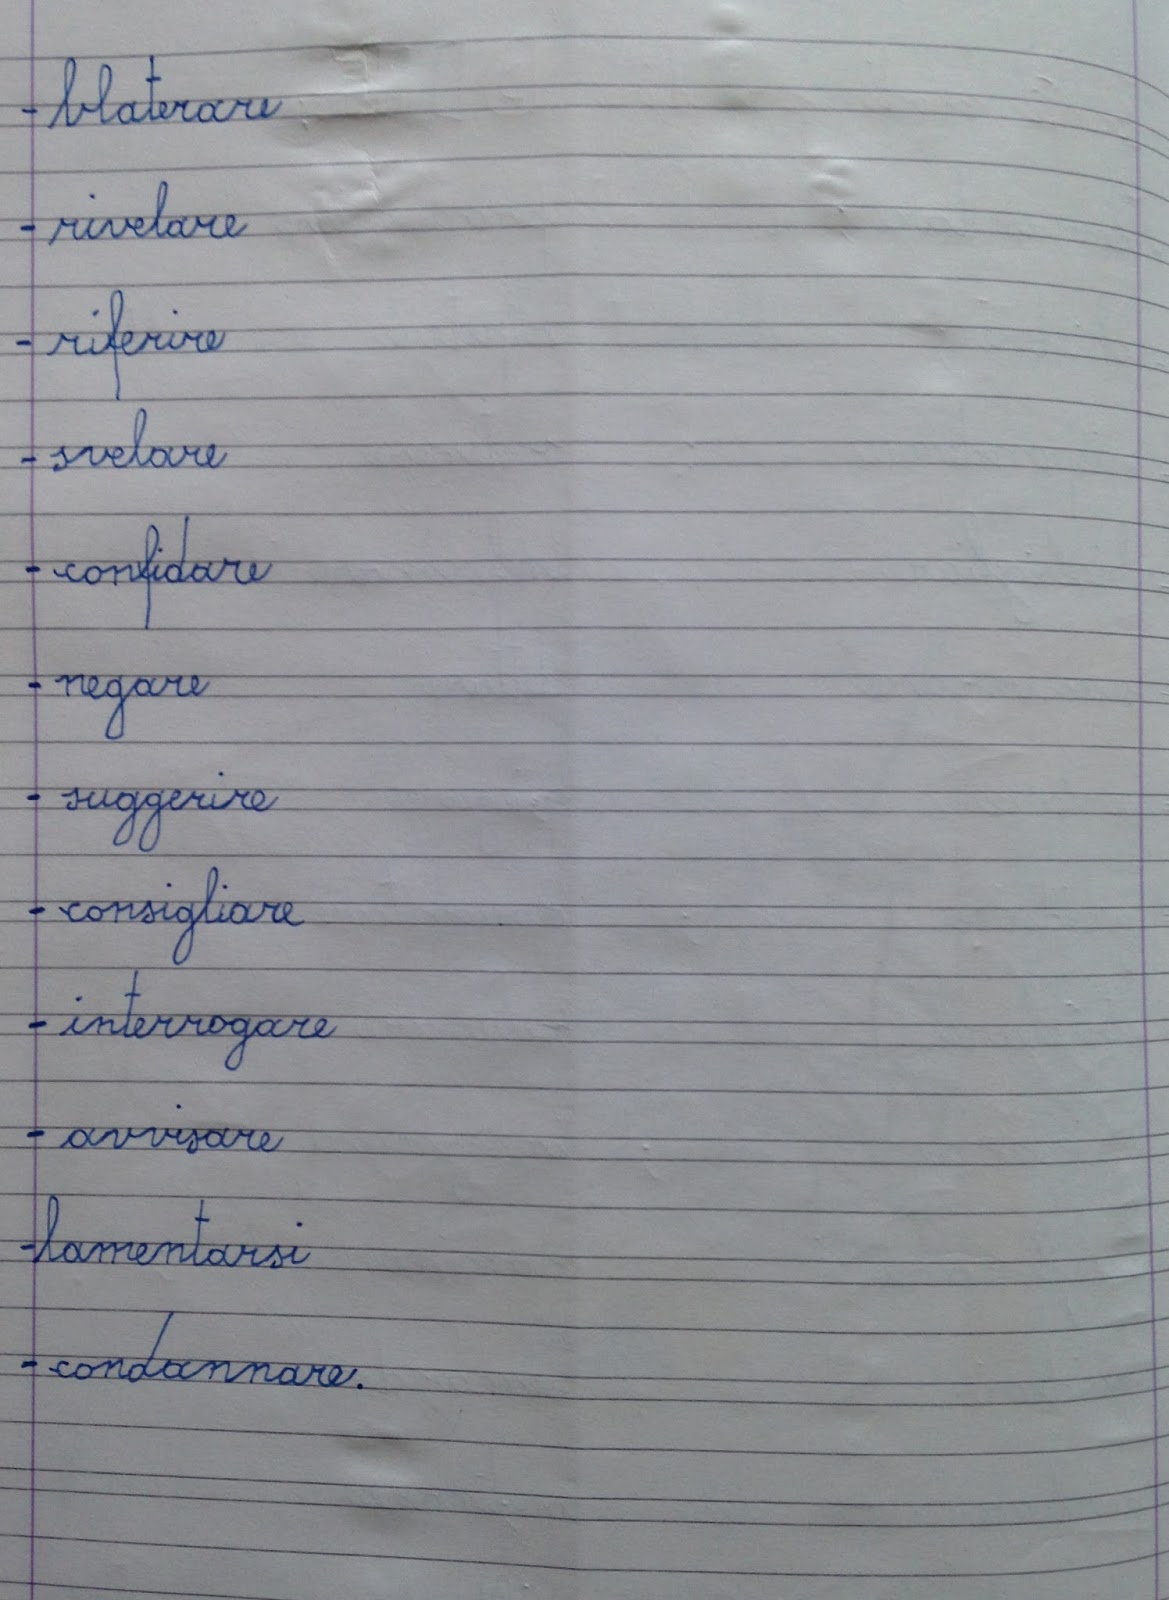 - blaterare
- rivelare
- riferire
- svelare
- confidare
- negare
- suggerire
- consigliare
- interrogare
- avvisare
-lamentarsi
- condannare.